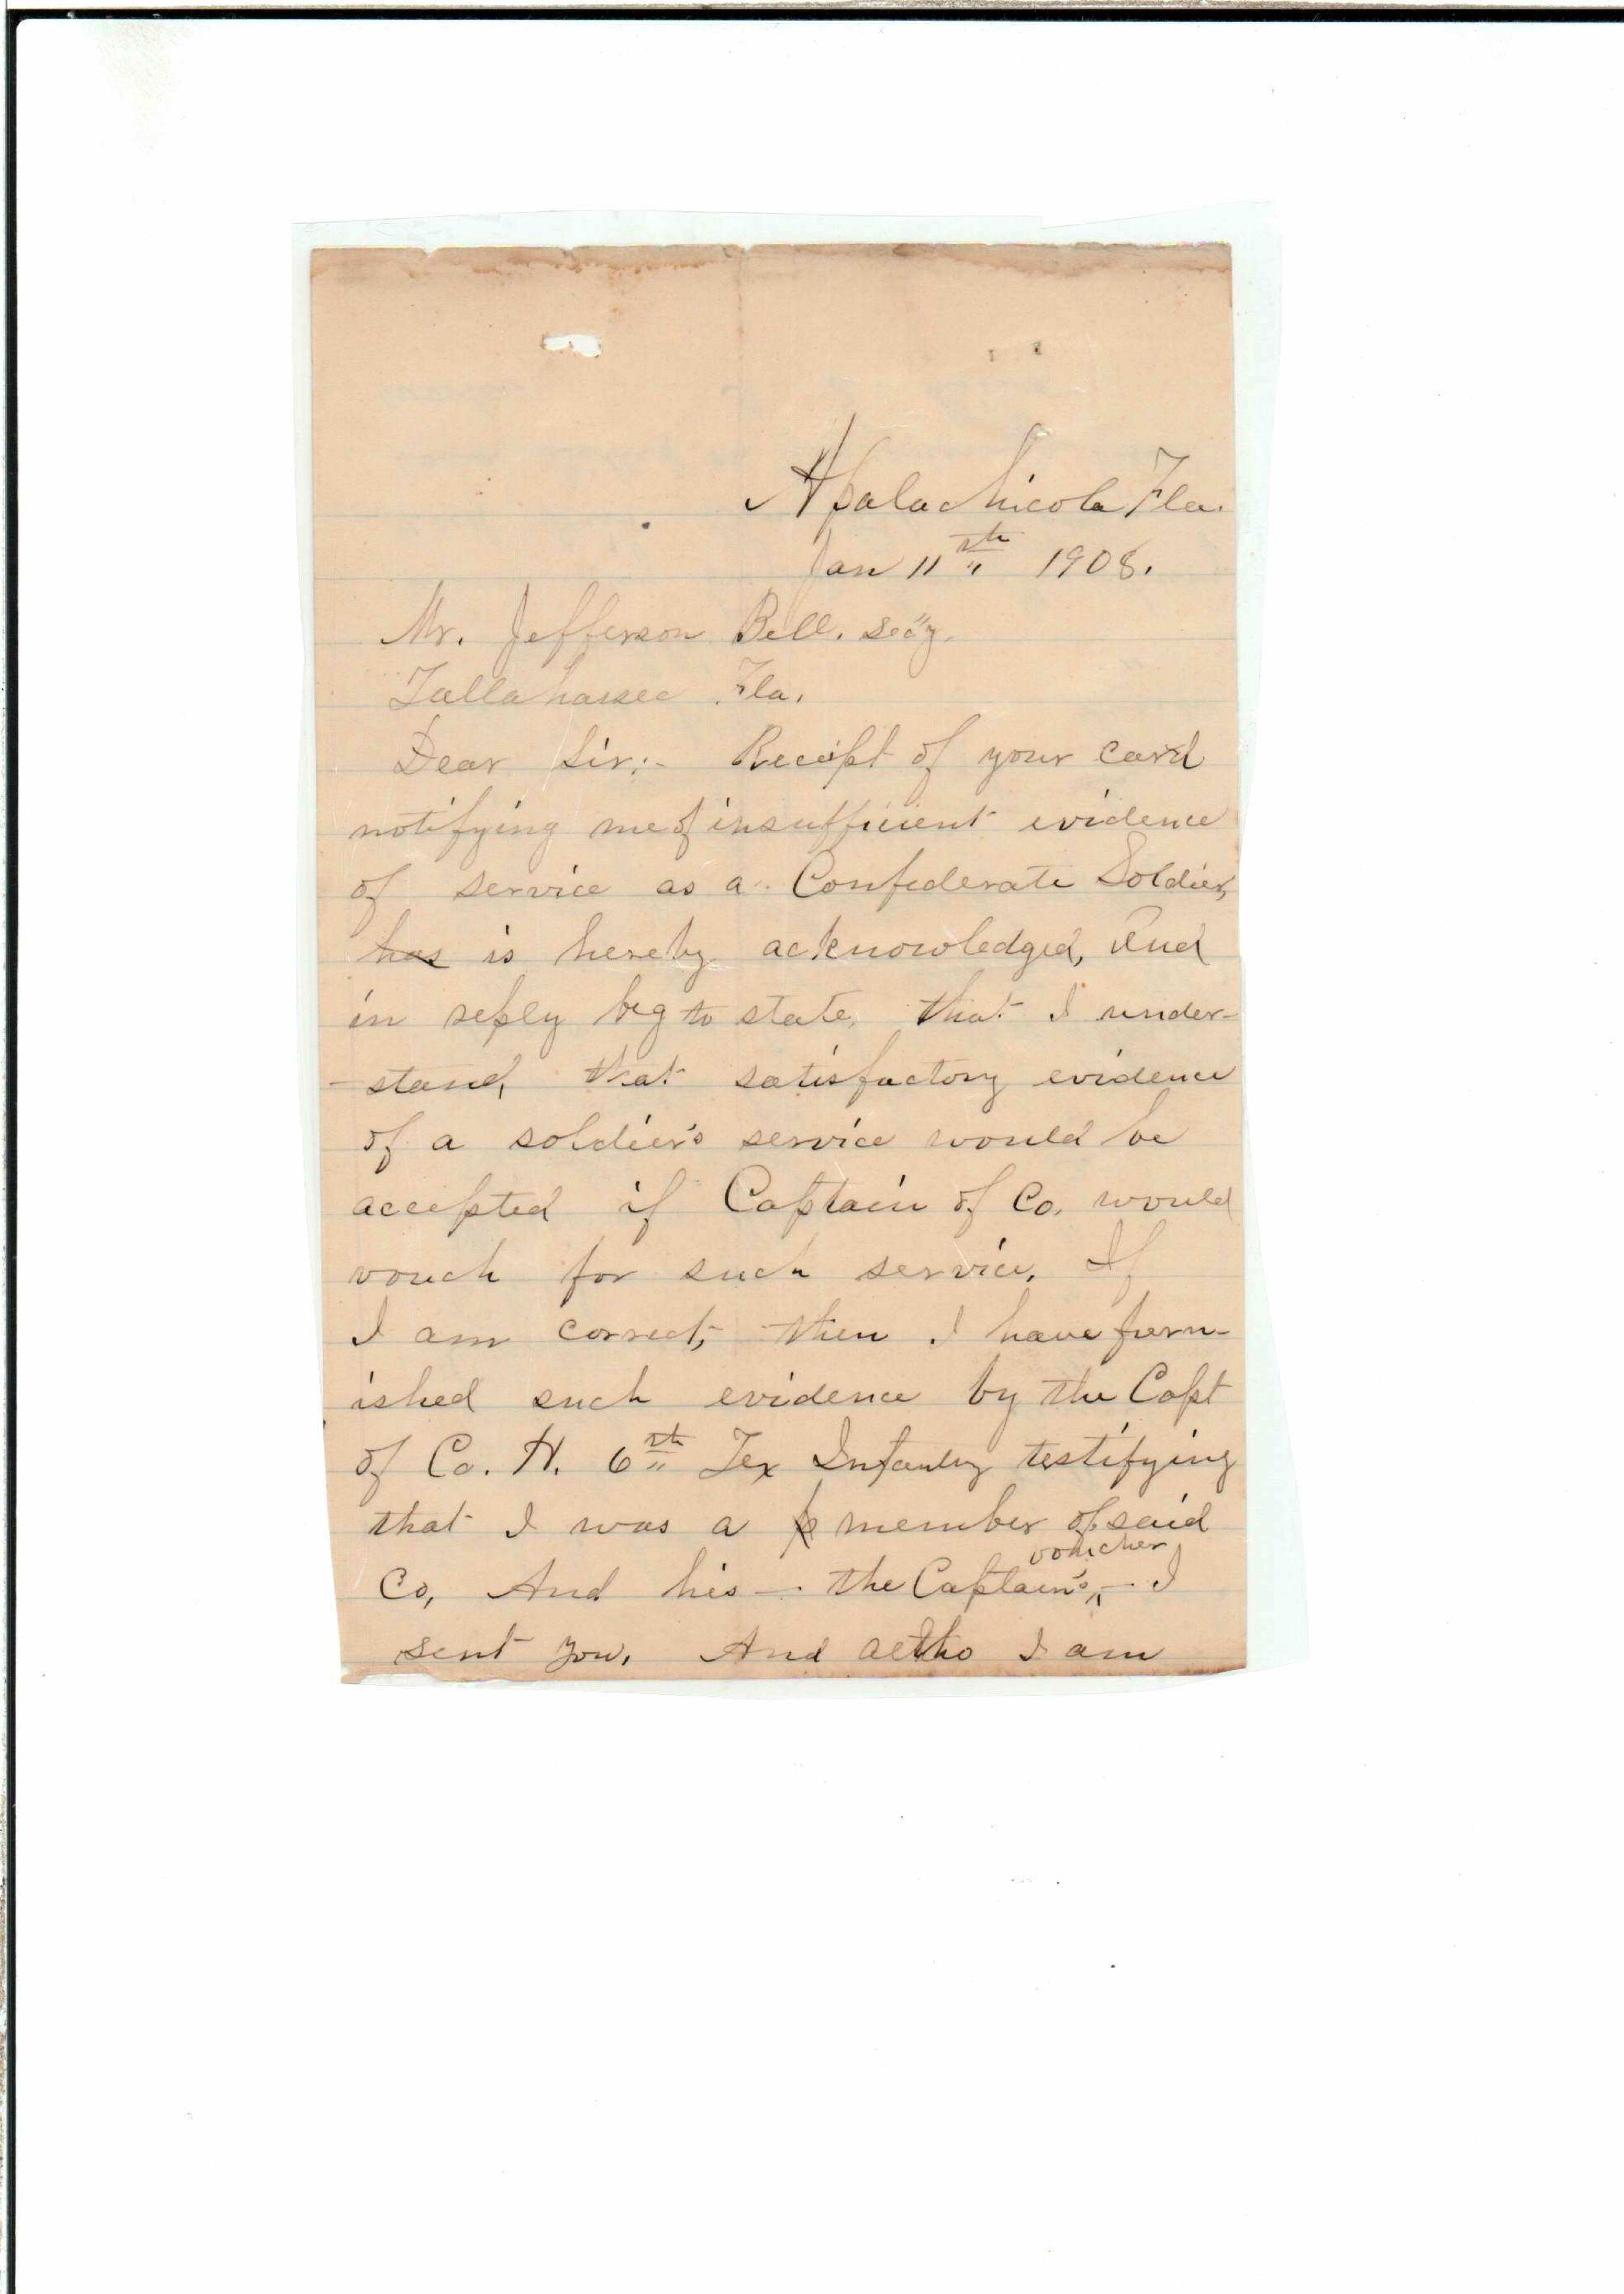 Apalachicola Fla.
Jan 11th 1908.
Mr. Jefferson Bell. Sec'y.
Tallahassee Fla.
Dear Sir:- Receipt of your card
notifying me of insufficient evidence
of service as a Confederate Soldier,
has is hereby acknowledged, And
in reply beg to state, that I under-
-stand, that satisfactory evidence
of a soldier's service would be
accepted if Captain of Co. would
vouch for such service. If
I am correct, then I have furn-
ished such evidence by the Capt
of Co. H. 6th Tex Infantry testifying
that I was a member of said
voucher
Co, And his - the Captain's, - I
sent you. And altho I am